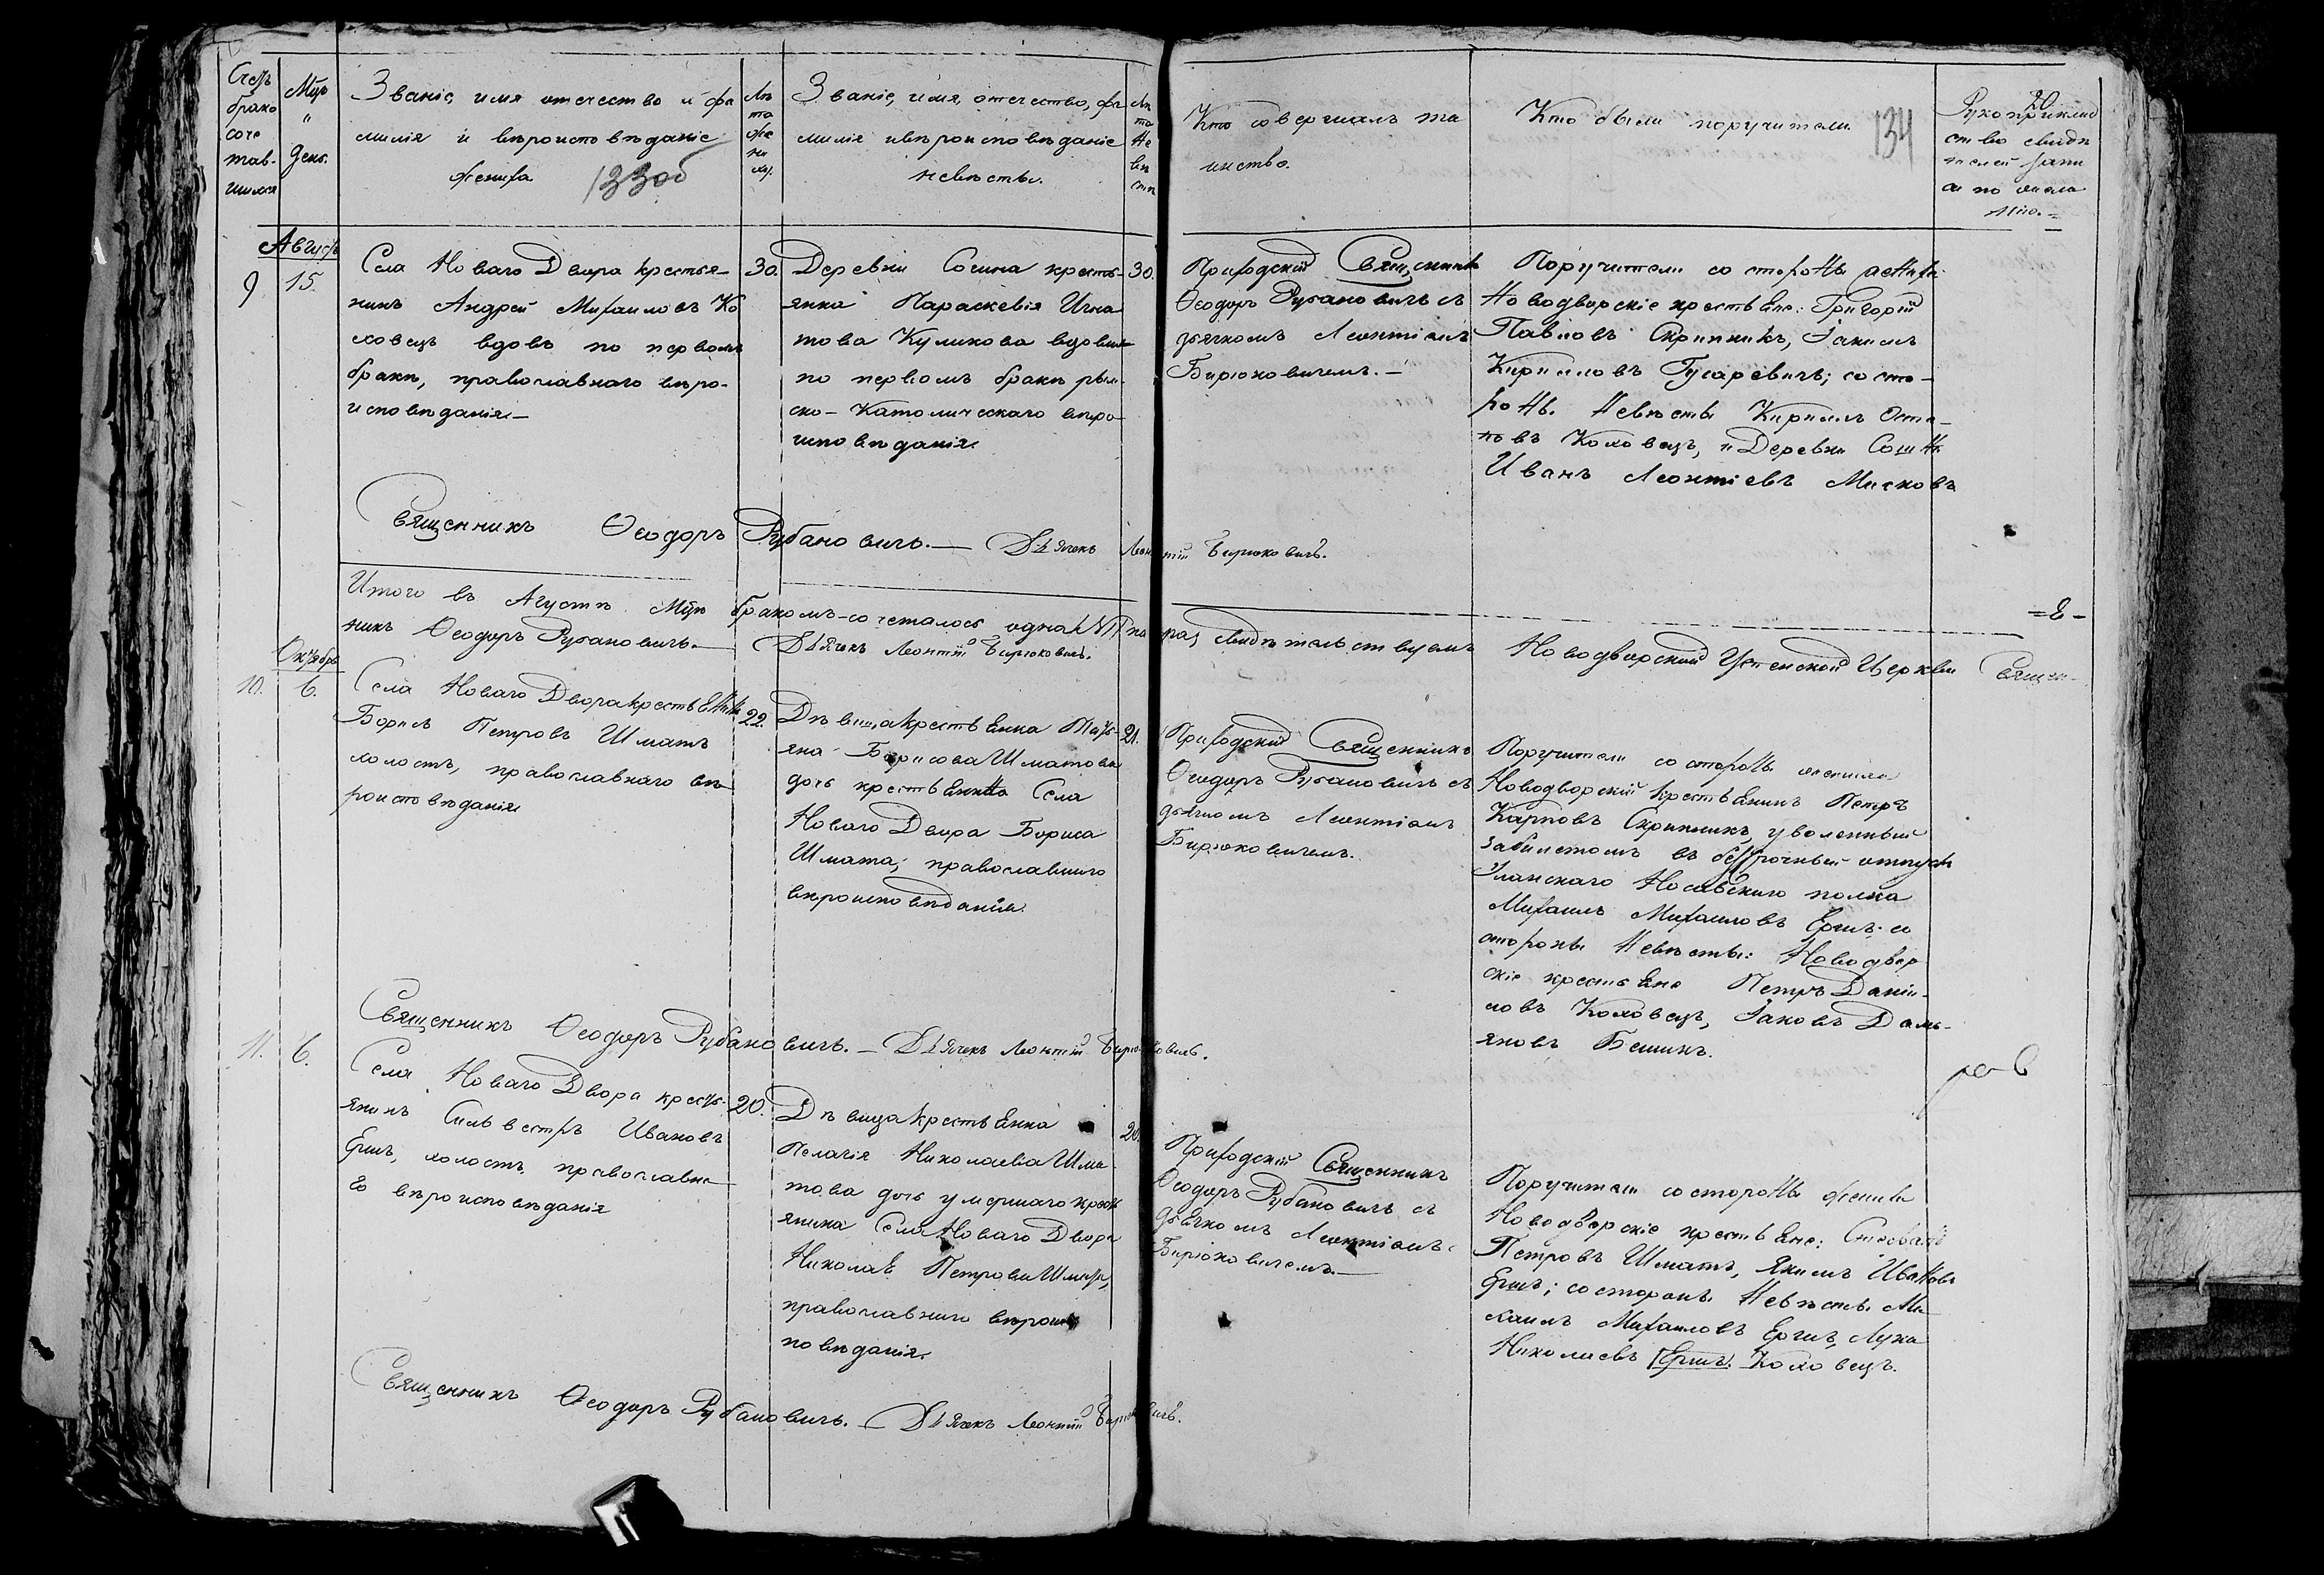 Счетъ брако соче тав- шихся
Мцъ и день.
Званіе, имя отечество и фа
милія и вѣроисповѣданіе
жениха
133об
Лѣ та же ни ху.
Званіе, имя, отечество, фа
милія и вѣроисповѣданіе
невѣсты.
Лѣ та не вѣ стѣ
Кто совершалъ та
инство.
Кто были поручители
134
20
Рукоприклад
ство свидѣ
телей записи
по жела
нію.
Августъ
9
15.
Села Новаго Двора крестья-
нинъ Андрей Михаиловъ Ко
ховецъ вдовъ по первомъ
бракѣ, православнаго вѣро-
исповѣданія
30.
Деревни Сошна кресть-
янка Параскевія Игна
това Куликова вдовая
по первомъ бракѣ рим-
ско-Католическаго вѣро-
исповѣданія.
30.
Приходскій Священникъ
Ѳеодоръ Рубановичъ съ
дьячкомъ Леонтіемъ
Бирюковичемъ.-
Поручители со стороны жениха
Новодворскіе крестьяне: Григорій
Павловъ Скрипникъ, Іакимъ
Кириловъ Гусаревичъ; со сто-
роны невѣсты Кирилъ Оста-
повъ Коховецъ, и Деревни Сошны
Иванъ Леонтіевъ
Священникъ Ѳеодоръ Рубановичъ.- Дьячекъ Леонтій Бирюковичъ.
Итого въ Агустѣ Мцѣ бракомъ-сочеталось одна №1 пара, свидѣтельствуемъ Новодворской Успенской Церкви Священ-
никъ Ѳеодоръ Рубановичъ.- Дьячекъ Леонтій Бирюковичъ.
Октябрь
10.
6.
Села Новаго Двора крестьянинъ
Борисъ Петровъ Шматъ
холостъ, православнаго вѣ-
роисповѣданія
22.
Дѣвица крестьянка Татья-
на Борисова Шматова
дочь крестьянина Села
Новаго Двора Бориса
Шмата; православнаго
вѣроисповѣданія.
21.
Приходскій Священникъ
Ѳеодоръ Рубановичъ съ
дьячкомъ Леонтіемъ
Бирюковичемъ.
Поручители со стороны жениха
Новодворскій крестьянинъ Петръ
Карповъ Скрипникъ, уволенный
за билетомъ въ безсрочный отпускъ
Уланскаго полка
Михаилъ Михаиловъ Ершъ со
стороны невѣсты: Новодвор
скіе крестьяне Петръ Даніи-
ловъ Коховецъ, Іаковъ Дамь-
яновъ
Священникъ Ѳеодоръ Рубановичъ.- Дьячекъ Леонтій Бирюковичъ.
11.
6.
Села Новаго Двора кресть-
янинъ Сильвестръ Ивановъ
Ершъ, холостъ, православна
го вѣроисповѣданія
20.
Дѣвица крестьянка
Пелагія Николаева Шма-
това дочь умершаго кресть
янина Села Новаго Двора
Николая Петрова Шмата,
православнаго вѣроис
повѣданія.
20.
Приходскій Священникъ
Ѳеодоръ Рубановичъ съ
дьячкомъ Леонтіемъ
Бирюковичемъ.-
Поручители со стороны жениха
Новодворскіе крестьяне:
Петровъ Шматъ, Якимъ Ивановъ
Ершъ; со стороны невѣсты Ми-
хаилъ Михаиловъ Ершъ, Лука
Николаевъ (Ершъ). Коховецъ.
Священникъ Ѳеодоръ Рубановичъ.- Дьячекъ Леонтій Бирюковичъ.